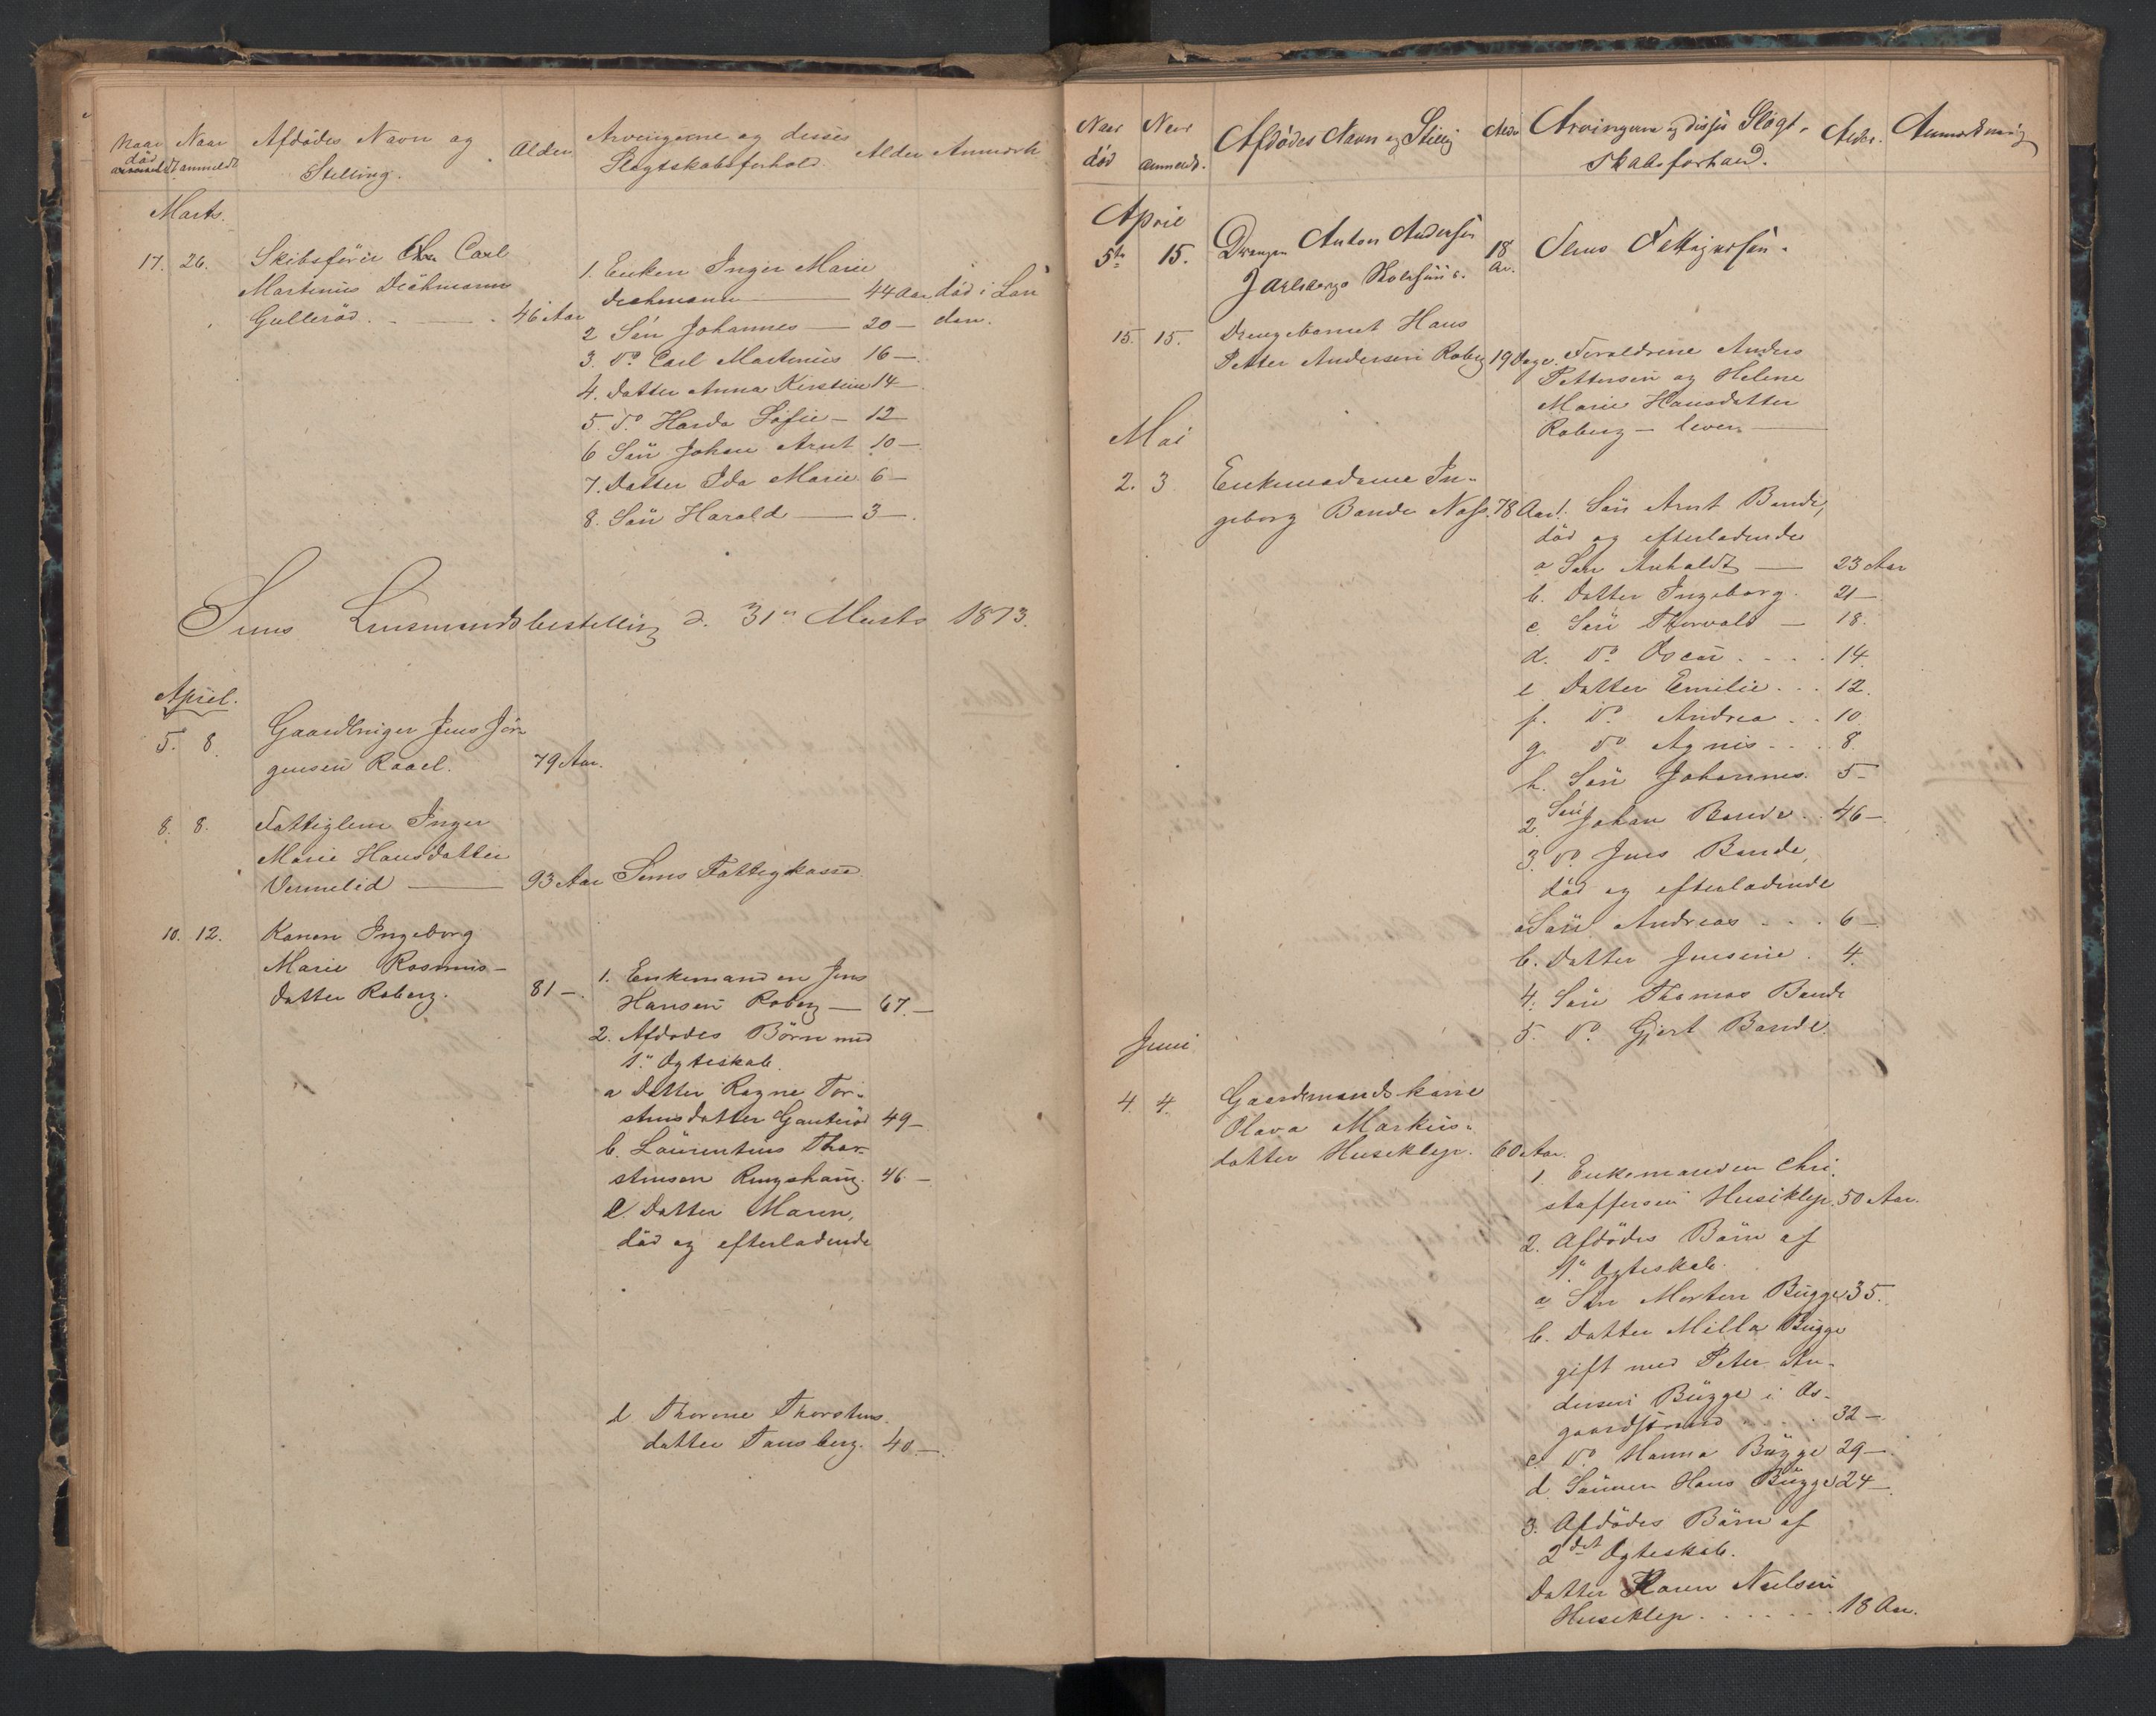 Naar død anmeldt
Naar anmeldt
Afdødes Navn og Stilling.
Alder
Arvingerne og disses Slægtskabsforhold
Alder
Anmærk
Marts.
17. 26. Skibsfører Carl
Martinus Deichmann
Gullerød. 46 Aar
1. Enken Inger Marie
Deichmann 44 Aar død i Lon
2 Søn Johannes 20 don.
3. Do Carl Martinius 16
4. Datter Anna Kirstine 14
5. Do Harda Sofie 12
6 Søn Johan Arnt 10
7. Datter Ida Marie 6
8. Søn Harald 3
Sems Lensmandsbestilling d. 31te Marts 1873.
April.
5. 8. Gaardbruger Jens Jør-
gensen Raael. 79 Aar.
8. 8. Fattiglem Inger
Marie Hansdatter
Vermelid 93 Aar Sems Fattigkasse
10. 12. Konen Ingeborg
Marie Rasmus-
datter Roberg. 81
1. Enkemanden Jens
Hansen Roberg 67.
2. Afdødes Børn med
1ste Ægteskab.
a Datter Ragne Tor-
stensdatter Gauterød 49
b. Laurentius Thor-
stensen Ringshaug. 46
c. Datter Maren,
død og efterladende
d. Thorine Thorstens-
datter Tønsberg. 40
Naar død
Naar anmeldt.
Afdødes Navn og Stilling
Alder
Arvingerne og disses Slægt-
skabsforhold.
Alder.
Anmærkning
April
5te 15. Drengen Anton Andersen
Jarlsbergs Hovedgaard 18 Aar. Sems Fattigkasse.
15. 15. Drengebarnet Hans
Petter Andersen Roberg 19 Dage. Forældrene Anders
Pettersen og Helene
Marie Hansdatter
Roberg – lever.
Mai
2. 3 Enkemadame In-
geborg Bande Næss. 78 Aar 1. Søn Arnt Bande,
død og efterladende
a Søn Anholdt 23 Aar
b. Datter Ingeborg. 21
c. Søn Thorvald 18.
d. Do Oscar 14.
e Datter Emilie 12.
f. Do Andrea 10
g. Do Agnis 8.
h. Søn Johannes. 5
2. Søn Johan Bande 46
3. Do Jens Bande,
død og efterladende
a Søn Andreas 6
b. Datter Jensine 4.
4. Søn Thomas Bande
5. Do Gjert Bande.
Juni
4. 4. Gaardmandskone
Olava Markus-
datter Huseklep. 60 Aar.
1. Enkemanden Chri-
stoffersen Huseklep. 50 Aar.
2. Afdødes Børn af
1ste Ægteskab.
a Søn Morten Bugge 35.
b. Datter Milla Bugge
gift med Peter An-
dersen Bugge i Aas-
gaardstrand 32
c. Do Hanna Bugge 29
d. Sønnen Hans Bugge 24
3. Afdødes Børn af
2det Ægteskab.
Datter Karen Nielsen
Huseklep. 18 Aar.